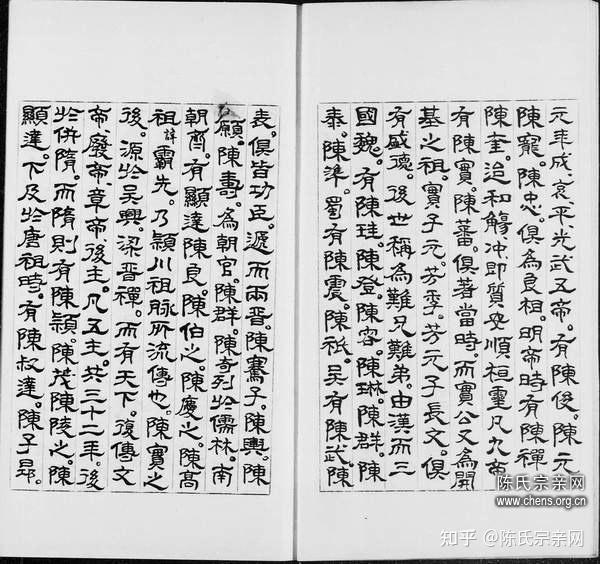 元年成。哀平光武五帝。有陳俊。陳元
陳寵。陳忠。俱為良相。明帝時有陳禪
陳奎。迨和觴冲即質安順桓靈凡九帝
有陳實。陳蕃。俱著當時。而實公又為開
基之祖。實子元。芳季。芳元子長文。俱
有盛德。後世稱為難兄難弟。由漢而三
國魏。有陳珪。陳登。陳容。陳琳。陳群。陳
泰。陳準。蜀有陳震。陳祗。吳有陳武。陳
表。俱皆功臣。遞而兩晋。陳騫子。陳輿。陳
願。陳壽。為朝官。陳群。陳奇列於儒林。南
朝齊。有顯達陳良。陳伯之。陳慶之。陳高
祖諱霸先。乃潁川祖脉所流傳也。陳實之
後。源於吳興。梁晋禪。而有天下。復傳文
帝。廢帝章帝後主。凡五主。共三十二年。後
於併隋。而隋則有陳穎。陳茂陳陵之。陳
顯達。下及於唐祖時。有陳叔達。陳子昂。
陈氏宗亲网
www.chens.org.cn
知乎 @陈氏宗亲网